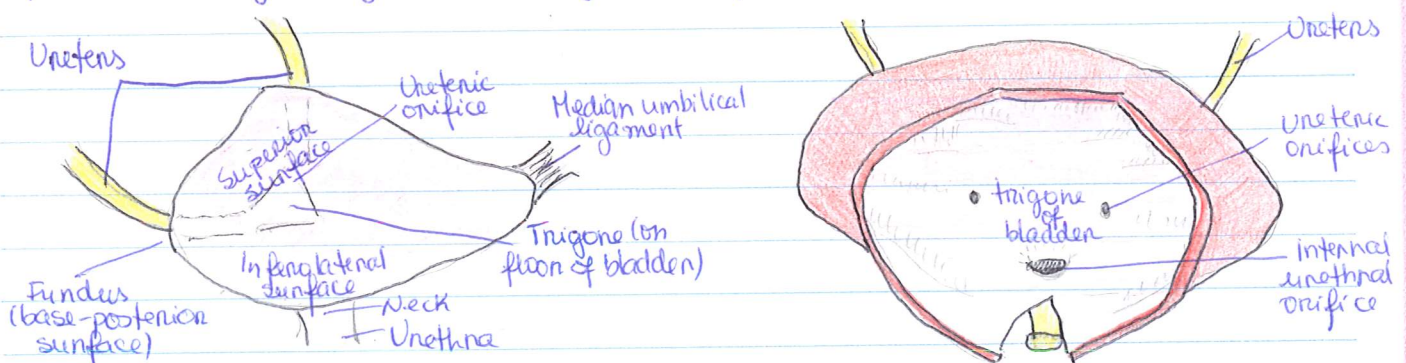 Ureters
Ureteric
orifice
Median umbilical
ligament
Superior
surface
Trigone (on
floor of bladder)
Inferolateral
surface
Fundus
(base-posterior
surface)
Neck
Urethra
Ureters
Ureteric
orifices
trigone
of
bladder
internal
urethral
orifice